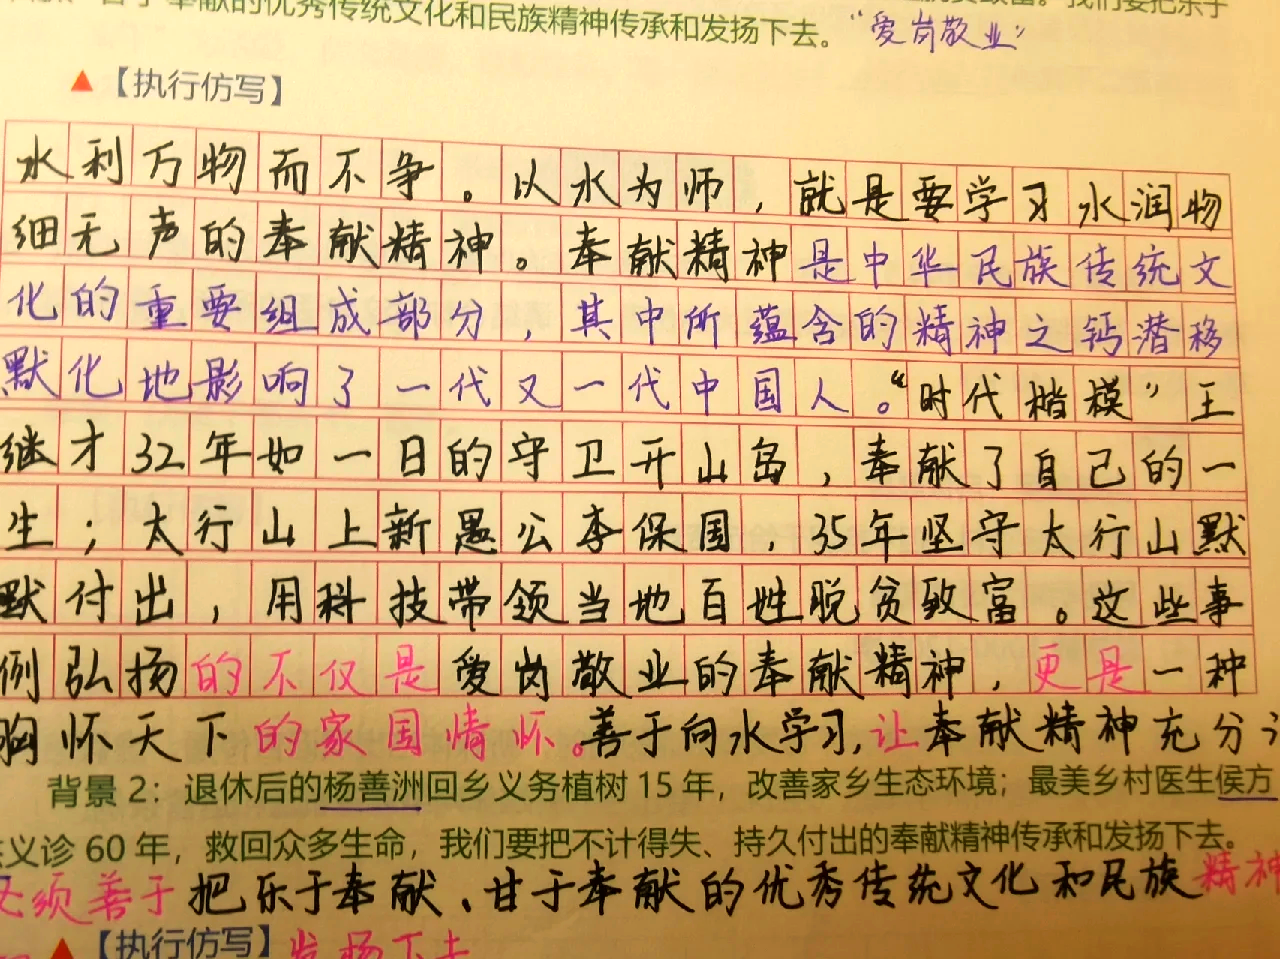 奉献的优秀传统文化和民族精神传承和发扬下去。“爱岗敬业”
▲【执行仿写】
水利万物而不争。以水为师，就是要学习水润物
细无声的奉献精神。奉献精神是中华民族传统文
化的重要组成部分，其中所蕴含的精神之钙潜移
默化地影响了一代又一代中国人。“时代楷模”王
继才32年如一日的守卫开山岛，奉献了自己的一
生；太行山上新愚公李保国，35年坚守太行山默
默付出，用科技带领当地百姓脱贫致富。这些事
例弘扬的不仅是爱岗敬业的奉献精神，更是一种
胸怀天下的家国情怀。善于向水学习，让奉献精神充分
背景2：退休后的杨善洲回乡义务植树15年，改善家乡生态环境；最美乡村医生侯方
义诊60年，救回众多生命，我们要把不计得失、持久付出的奉献精神传承和发扬下去。
必须善于把乐于奉献、甘于奉献的优秀传统文化和民族精神
▲【执行仿写】发扬下去